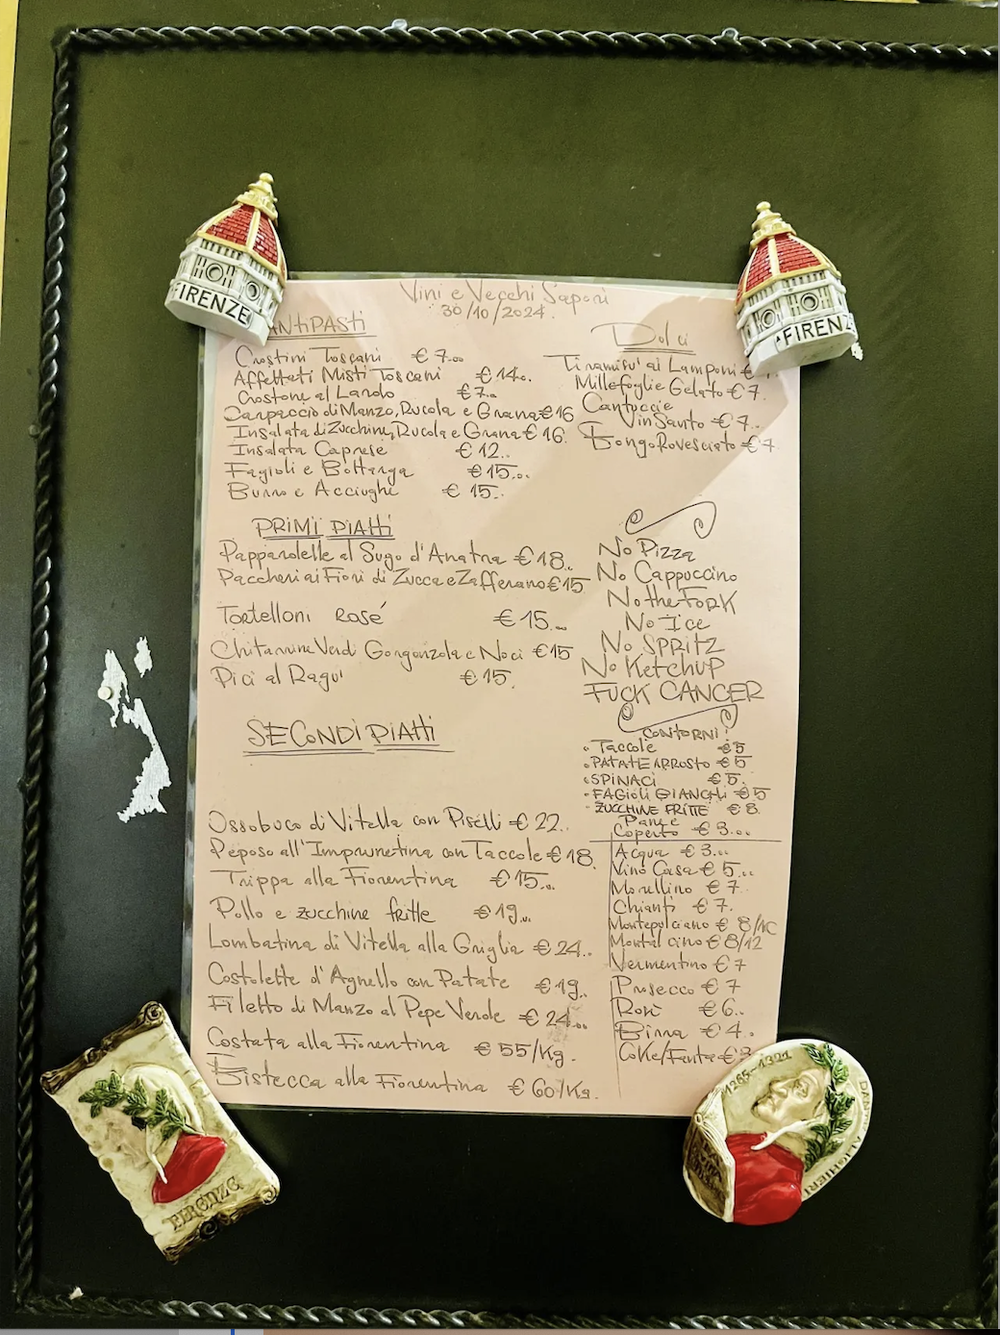 Vini e Vecchi Sapori
30/10/2024.
ANTIPASTI
Crostini Toscani € 7...
Affettati Misti Toscani € 14..
Crostone al Lardo € 7..
Carpaccio di Manzo, Rucola e Grana € 16
Insalata di Zucchine, Rucola e Grana € 16.
Insalata Caprese € 12..
Fagioli e Bottarga € 15...
Burro e Acciughe € 15..
PRIMI PIATTI
Pappardelle al Sugo d'Anatra € 18..
Paccheri ai Fiori di Zucca e Zafferano € 15
Tortelloni rosé € 15...
Chitarrine Verdi Gorgonzola e Noci € 15
Pici al Ragu' € 15.
SECONDI PIATTI
Ossobuco di Vitella con Piselli € 22..
Peposo all'Imprunetina con Taccole € 18.
Trippa alla Fiorentina € 15...
Pollo e zucchine fritte € 19...
Lombatina di Vitella alla Griglia € 24..
Costolette d'Agnello con Patate € 19..
Filetto di Manzo al Pepe Verde € 24...
Costata alla Fiorentina € 55/Kg.
Bistecca alla Fiorentina € 60/Kg.
Dolci
Tiramisu' ai Lamponi €
Millefoglie Gelato € 7.
Cantucci e
Vin Santo € 7..
Bongo Rovesciato € 7
No Pizza
No Cappuccino
No the FORK
No Ice
No SPRITZ
No KETCHUP
FUCK CANCER
CONTORNI
• Taccole € 5
• PATATE ARROSTO € 5
• SPINACI € 5.
• FAGIOLI BIANCHI € 5
• ZUCCHINE FRITTE € 8.
Pane e
Coperto € 3...
Acqua € 3...
Vino Casa € 5...
Morellino € 7.
Chianti € 7.
Montepulciano € 8/10
Montalcino € 8/12
Vermentino € 7
Prosecco € 7
Rosé € 6..
Birra € 4.
Coke/Fanta € 3
FIRENZE
FIRENZ
FIRENZE
1265-1321
DANTE ALIGHIERI